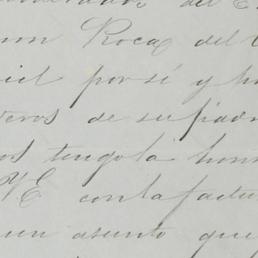 del E
Roca del
por sí y
de su padr
os tengo la hon
V E con la factu
un asunto que